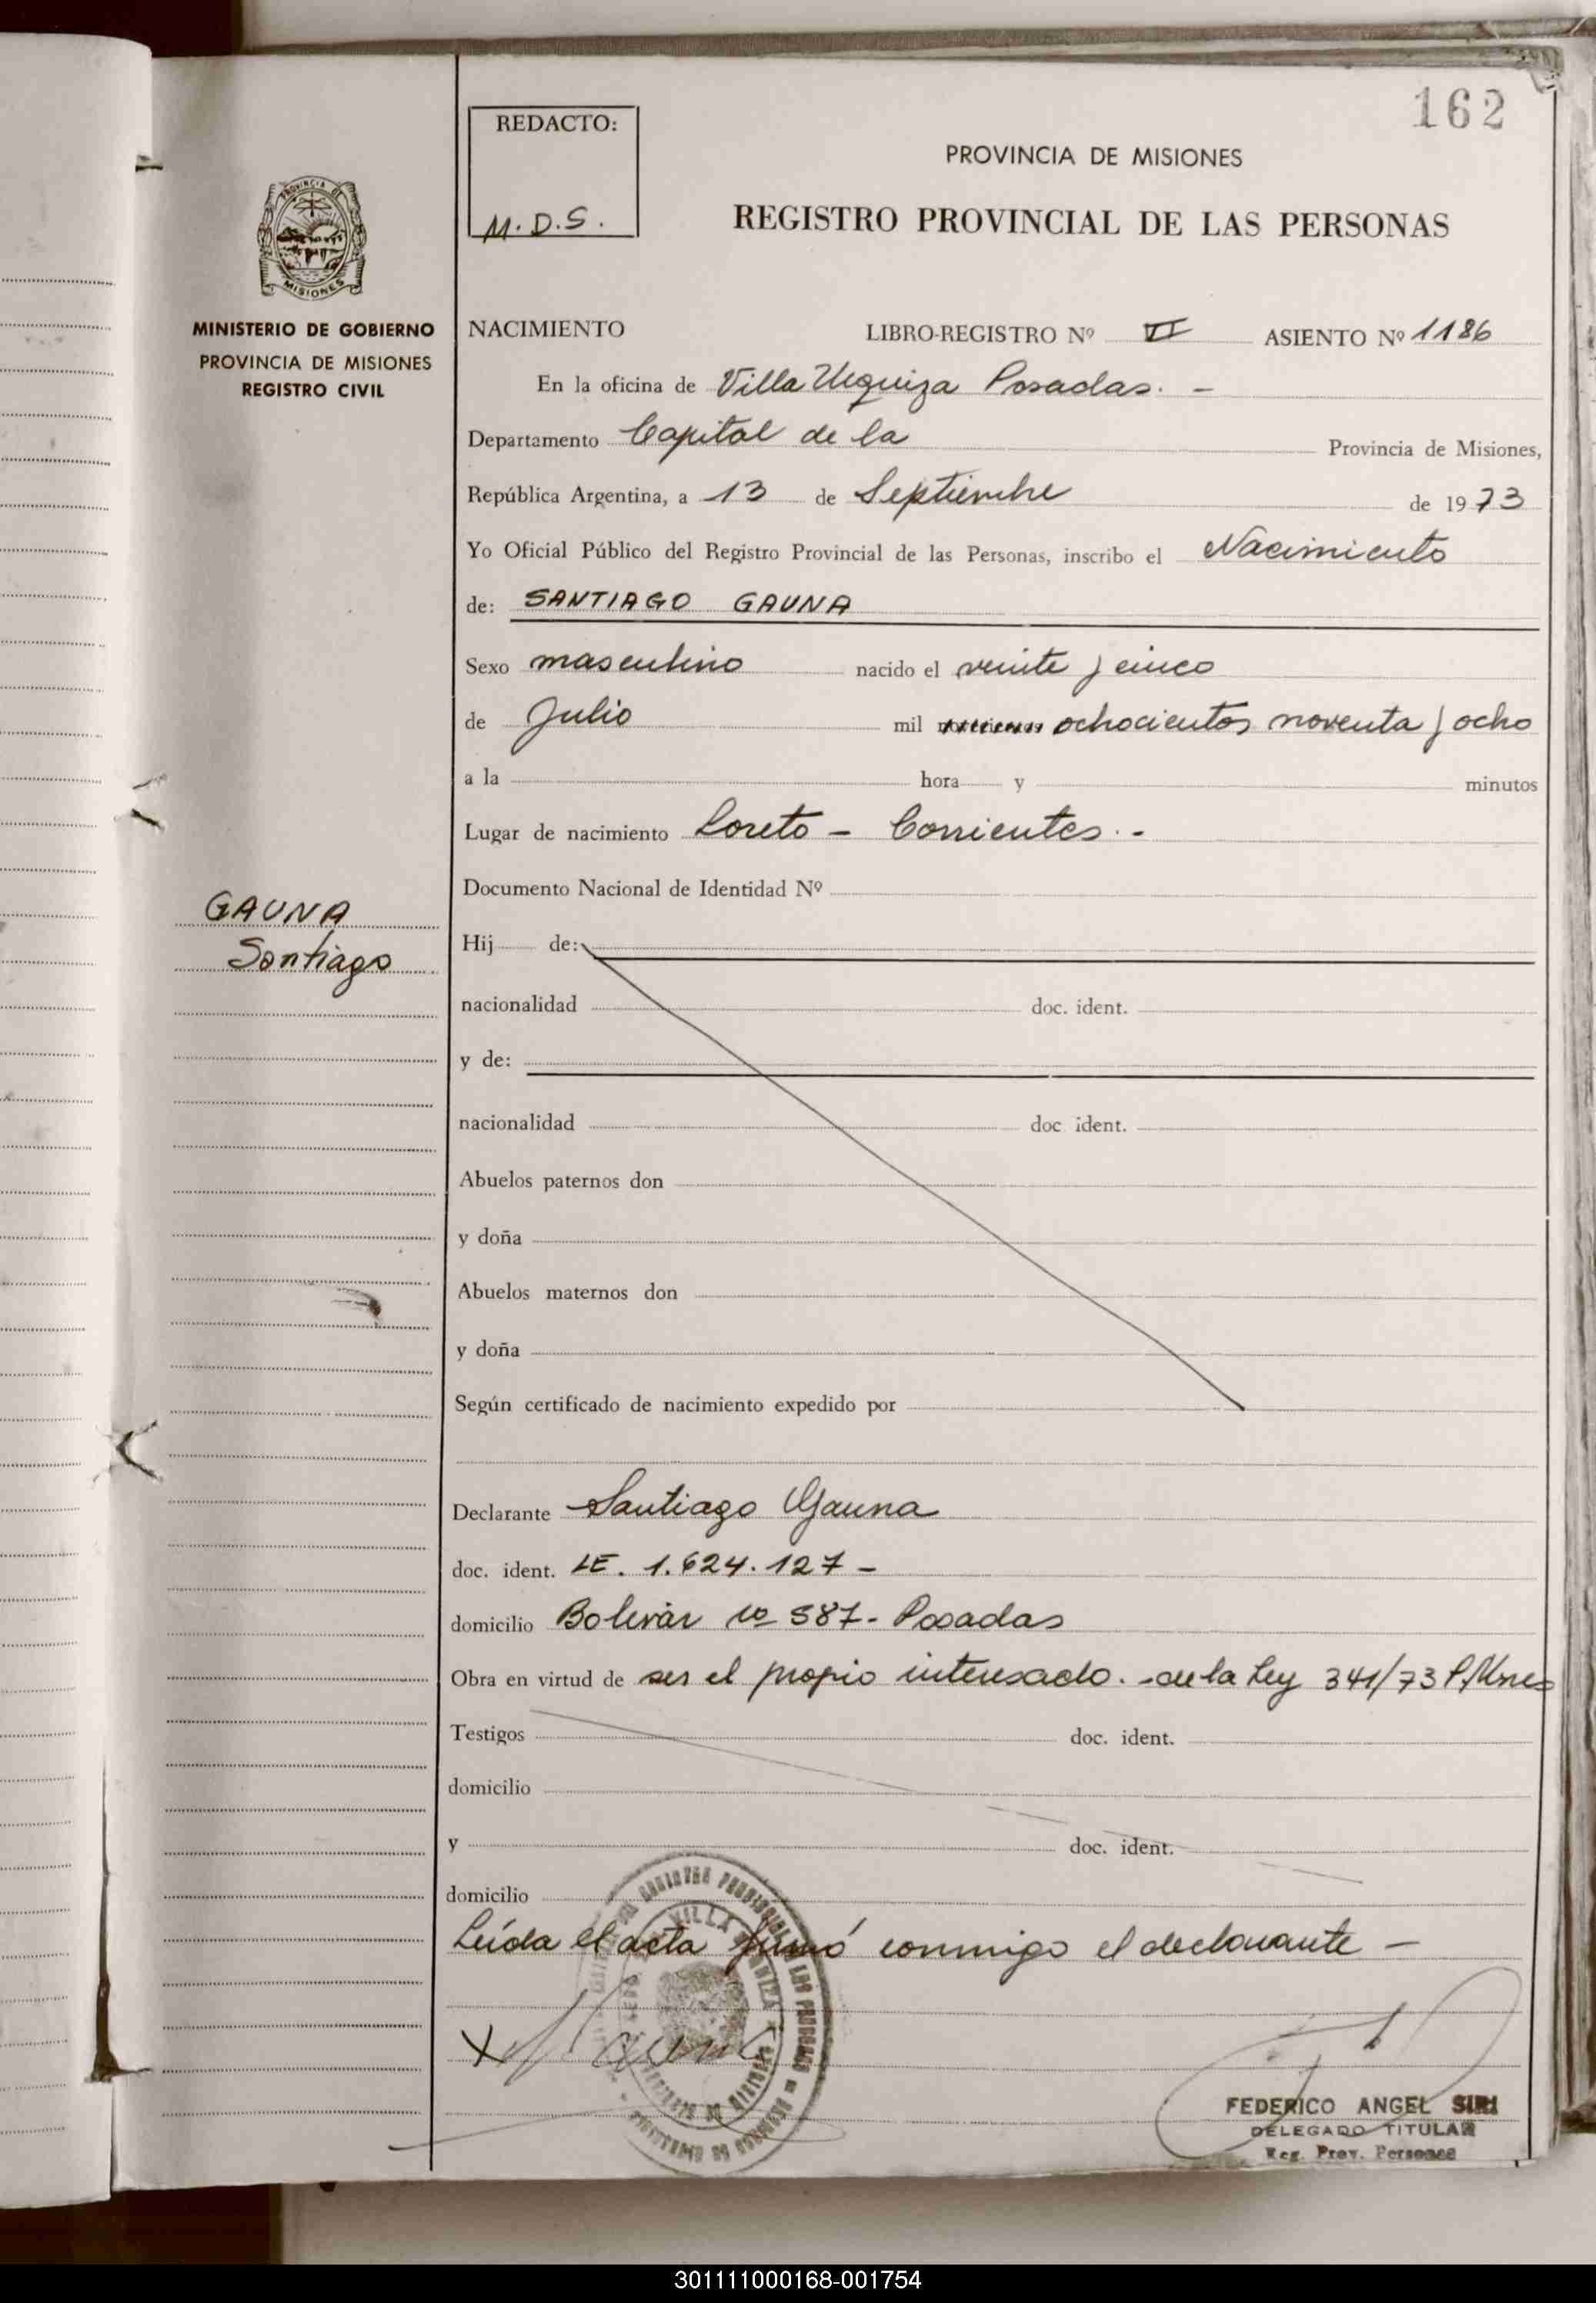 162
REDACTO:
M. D. S.
PROVINCIA DE MISIONES
REGISTRO PROVINCIAL DE LAS PERSONAS
PROVINCIA DE
MISIONES
MINISTERIO DE GOBIERNO
PROVINCIA DE MISIONES
REGISTRO CIVIL
NACIMIENTO LIBRO-REGISTRO Nº VI ASIENTO Nº 1186
En la oficina de Villa Urquiza Posadas. -
Departamento Capital de la Provincia de Misiones,
República Argentina, a 13 de Septiembre de 1973
Yo Oficial Público del Registro Provincial de las Personas, inscribo el Nacimiento
de: SANTIAGO GAUNA
Sexo masculino nacido el veinte y cinco
de Julio mil ochocientos noventa y ocho
a la hora y minutos
Lugar de nacimiento Loreto - Corrientes. -
Documento Nacional de Identidad Nº
GAUNA
Santiago
Hij de:
nacionalidad doc. ident.
y de:
nacionalidad doc ident.
Abuelos paternos don
y doña
Abuelos maternos don
y doña
Según certificado de nacimiento expedido por
Declarante Santiago Gauna
doc. ident. LE. 1.624.127 -
domicilio Bolivar nº 587- Posadas
Obra en virtud de ser el propio interesado. - de la Ley 341/73 P/Mnes
Testigos doc. ident.
domicilio
y doc. ident.
domicilio
Leída el acta firmó conmigo el declarante -
X Gauna
FEDERICO ANGEL SIRI
DELEGADO TITULAR
Reg. Prov. Personas
301111000168-001754